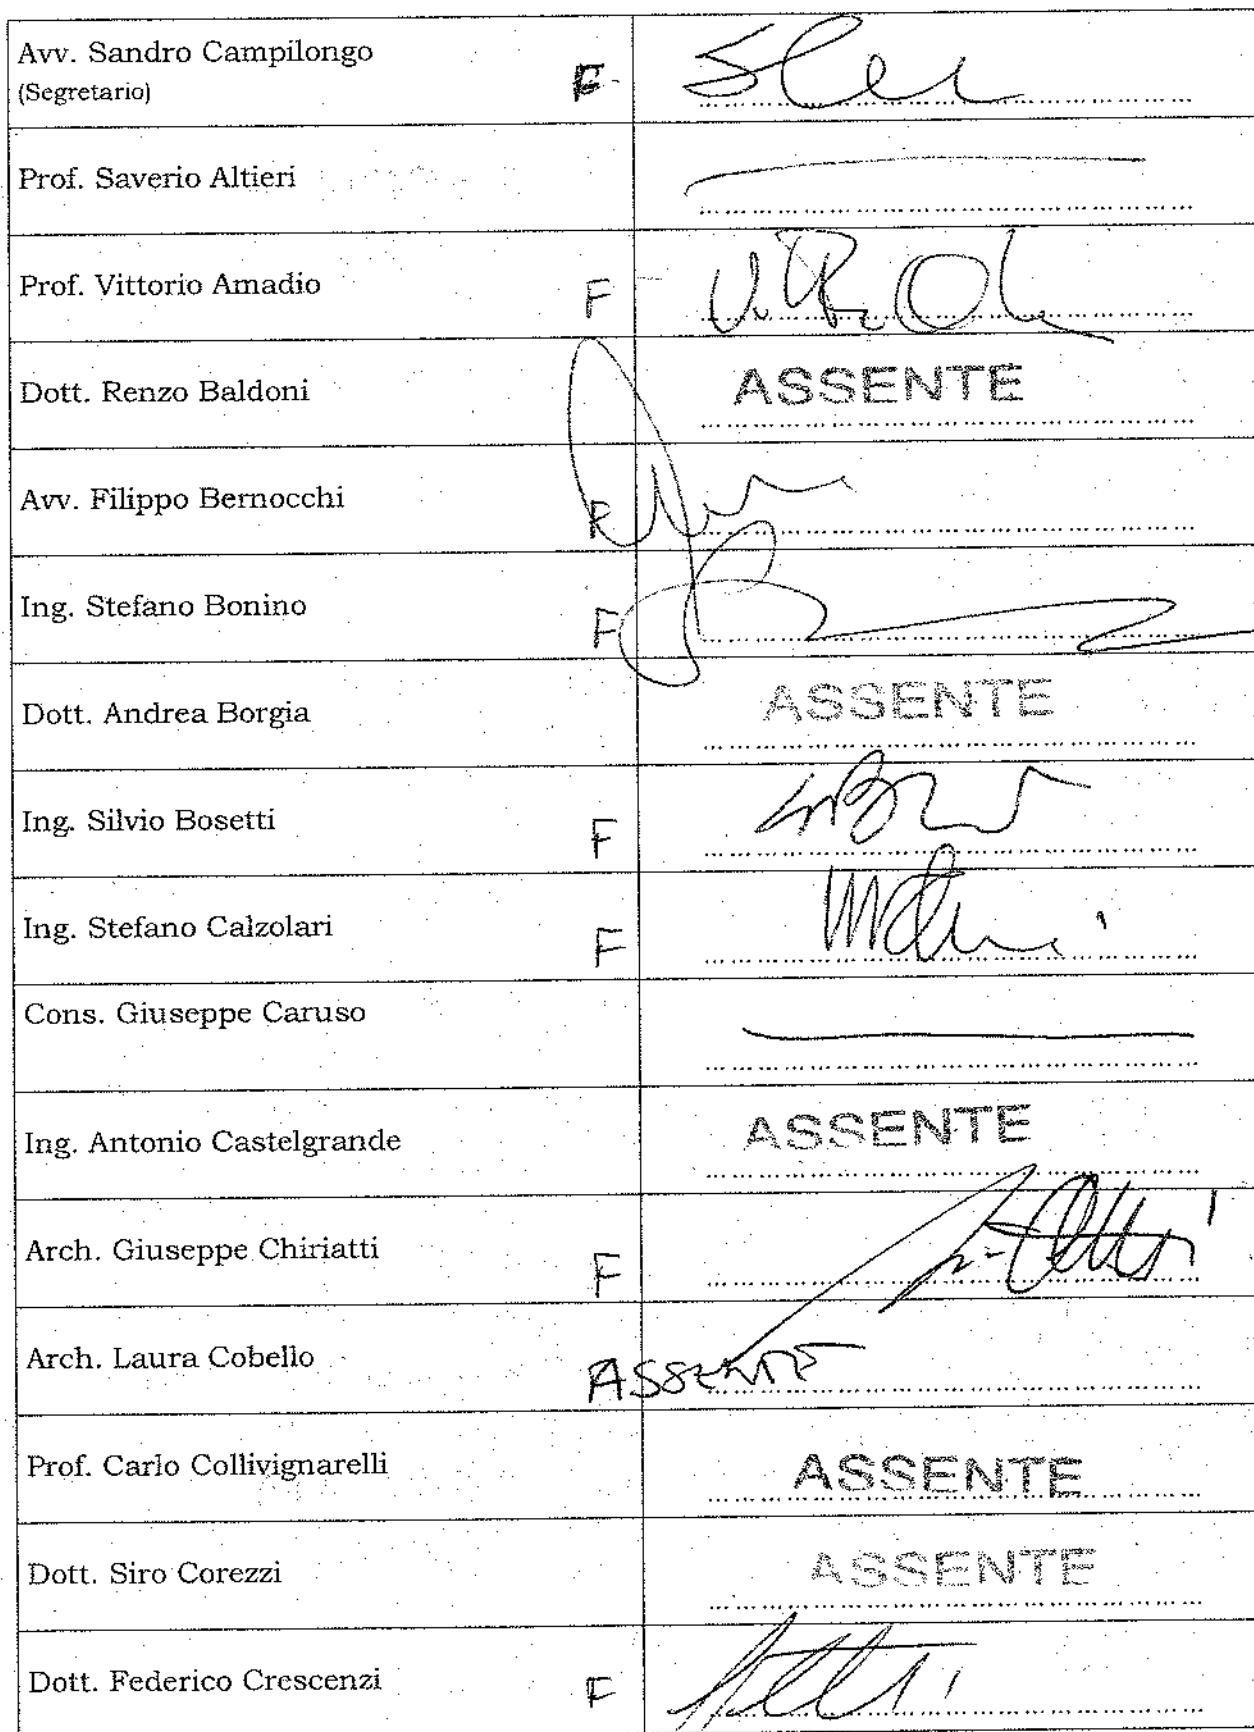 Avv. Sandro Campilongo
(Segretario) F
Prof. Saverio Altieri
Prof. Vittorio Amadio F
Dott. Renzo Baldoni ASSENTE
Avv. Filippo Bernocchi R
Ing. Stefano Bonino F
Dott. Andrea Borgia ASSENTE
Ing. Silvio Bosetti F
Ing. Stefano Calzolari F
Cons. Giuseppe Caruso
Ing. Antonio Castelgrande ASSENTE
Arch. Giuseppe Chiriatti F
Arch. Laura Cobello ASSENTE
Prof. Carlo Collivignarelli ASSENTE
Dott. Siro Corezzi ASSENTE
Dott. Federico Crescenzi F